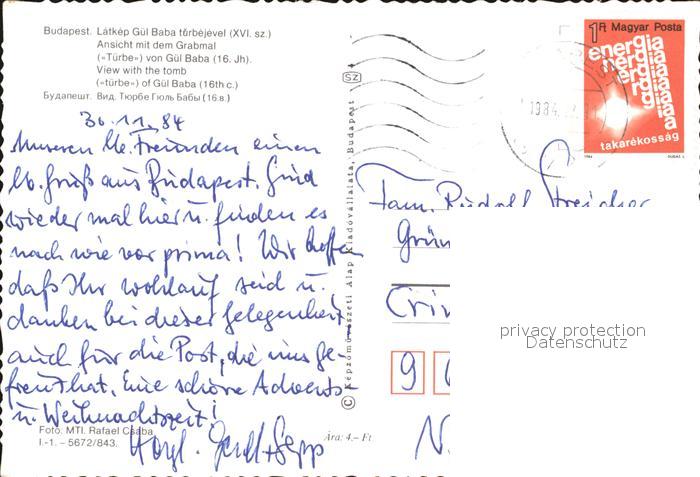 Budapest. Látkép Gül Baba türbéjével (XVI. sz.)
Ansicht mit dem Grabmal
(«Türbe») von Gül Baba (16. Jh).
View with the tomb
(«türbe») of Gül Baba (16th c.)
Будапешт. Вид. Тюрбе Гюль Бабы (16.в.)
30.11.84
Unseren lb. Freunden einen
lb. Gruß aus Budapest. Sind
wieder mal hier u. finden es
nach wie vor prima! Wir hoffen
daß Ihr wohlauf seid u.
danken bei dieser Gelegenheit
auch für die Post, die uns ge-
freut hat. Eine schöne Advents-
u. Weihnachtszeit!
Herzl. Sepp
Foto: MTI. Rafael Csaba
I.-1. – 5672/843.
Ára: 4.– Ft
SZ
© Képzőművészeti Alap Kiadóvállalata, Budapest
1984
1 Ft Magyar Posta
energia
takarékosság
1984
Fam. Rudolf Streicher
Grün
Crim
9
privacy protection
Datenschutz